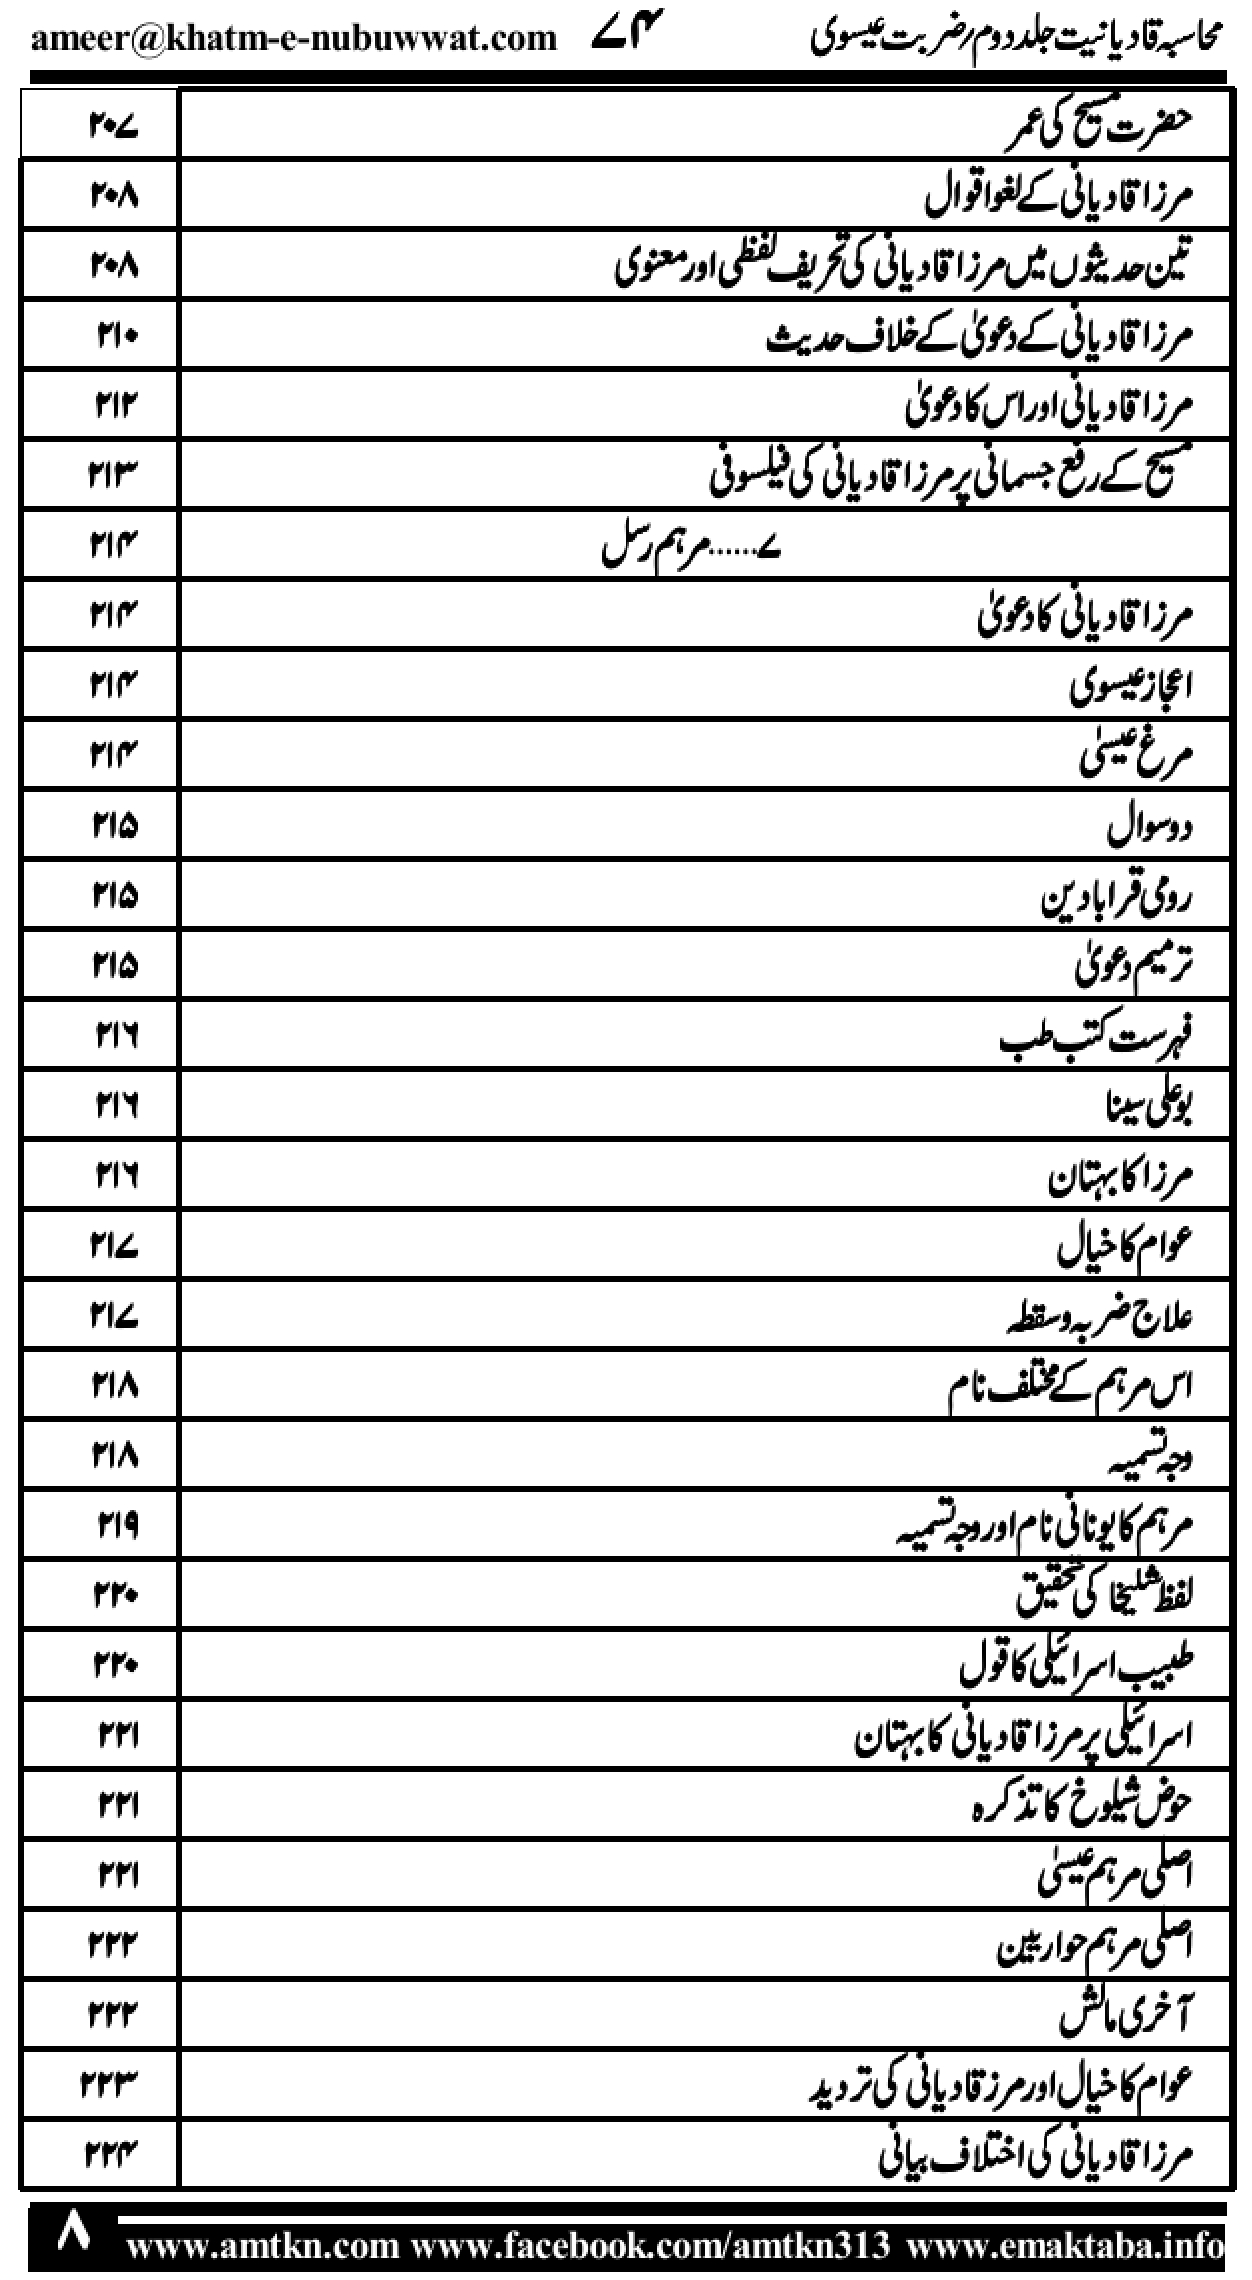 محاسبہ قادیانیت جلد دوم/ضربت عیسوی ۷۴ ameer@khatm-e-nubuwwat.com
حضرت مسیح کی عمر ۲۰۷
مرزا قادیانی کے لغو اقوال ۲۰۸
تین حدیثوں میں مرزا قادیانی کی تحریف لفظی اور معنوی ۲۰۸
مرزا قادیانی کے دعویٰ کے خلاف حدیث ۲۱۰
مرزا قادیانی اور اس کا دعویٰ ۲۱۲
مسیح کے رفع جسمانی پر مرزا قادیانی کی فیلسوفی ۲۱۳
۷......مرہم رسل ۲۱۴
مرزا قادیانی کا دعویٰ ۲۱۴
اعجاز عیسوی ۲۱۴
مرغ عیسیٰ ۲۱۴
دو سوال ۲۱۵
رومی قرابادین ۲۱۵
ترمیم دعویٰ ۲۱۵
فہرست کتب طب ۲۱۶
بوعلی سینا ۲۱۶
مرزا کا بہتان ۲۱۶
عوام کا خیال ۲۱۷
علاج ضربہ وسقطہ ۲۱۷
اس مرہم کے مختلف نام ۲۱۸
وجہ تسمیہ ۲۱۸
مرہم کا یونانی نام اور وجہ تسمیہ ۲۱۹
لفظ شلیخا کی تحقیق ۲۲۰
طبیب اسرائیلی کا قول ۲۲۰
اسرائیلی پر مرزا قادیانی کا بہتان ۲۲۱
حوض شیلوخ کا تذکرہ ۲۲۱
اصلی مرہم عیسیٰ ۲۲۱
اصلی مرہم حواریین ۲۲۲
آخری مالش ۲۲۲
عوام کا خیال اور مرز قادیانی کی تردید ۲۲۳
مرزا قادیانی کی اختلاف بیانی ۲۲۴
۸ www.amtkn.com www.facebook.com/amtkn313 www.emaktaba.info